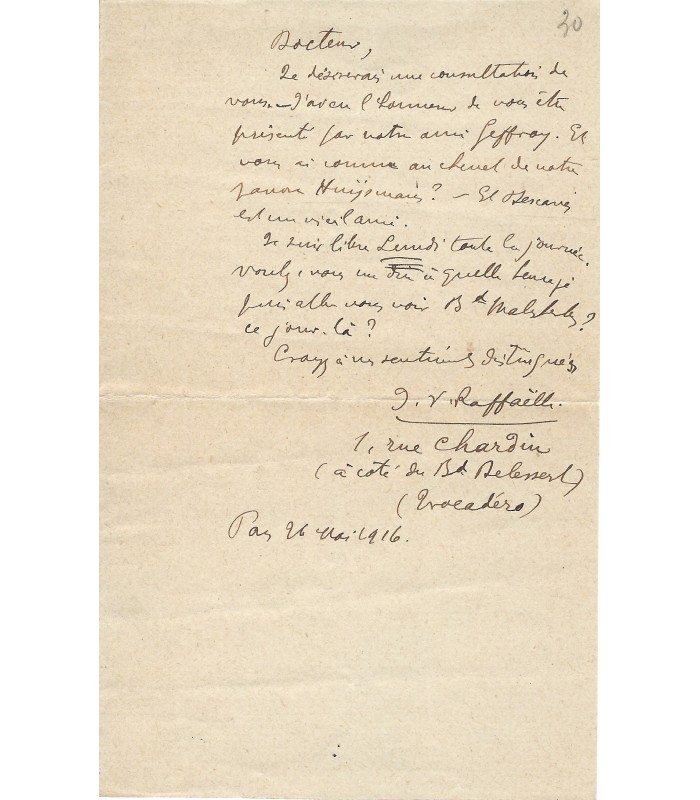 30
Docteur,
Je désirerais une consultation de
vous. – J'ai eu l'honneur de vous être
présenté par notre ami Geffroy. Et
vous ai connu au chevet de notre
Huijsmans ? – Et Descaves
est un vieil ami.
Je suis libre Lundi toute la journée.
voulez-vous me dire à quelle heure je
puis aller vous voir Bd Malesherbes ?
ce jour-là ?
Croyez à mes sentiments distingués
J. F. Raffaëlli.
1, rue Chardin
(à coté du Bd Delessert)
(Trocadéro)
Paris 26 Mai 1916.